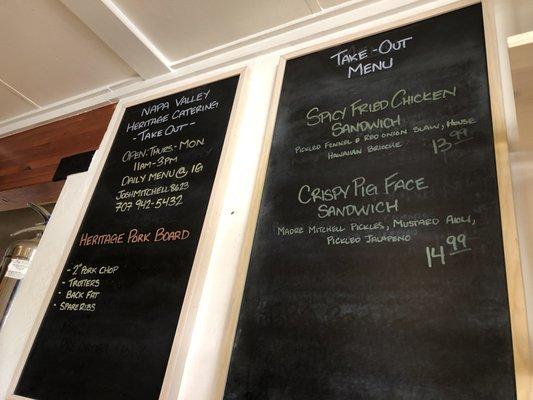 Napa Valley
Heritage Catering
- Take Out -
Open: Thurs - Mon
11am - 3pm
Daily Menu @ IG
Joshmitchell8623
707 942-5432
Heritage Pork Board
- 2" Pork Chop
- Trotters
- Back Fat
- Spareribs
Take-Out
Menu
Spicy Fried Chicken
Sandwich
Pickled Fennel & Red Onion Slaw, House
Hawaiian Brioche
13.99
Crispy Pig Face
Sandwich
Madre Mitchell Pickles, Mustard Aioli,
Pickled Jalapeno
14.99